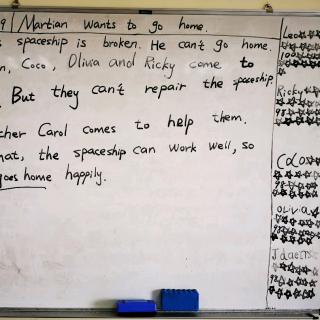 9 Martian wants to go home.
spaceship is broken. He can't go home.
Coco, Olivia and Ricky come to
. But they can't repair the spaceship
Carol comes to help them.
the spaceship can work well, so
goes home happily.
Leo
100
Ricky
98
Coco
98
Olivia
98
98